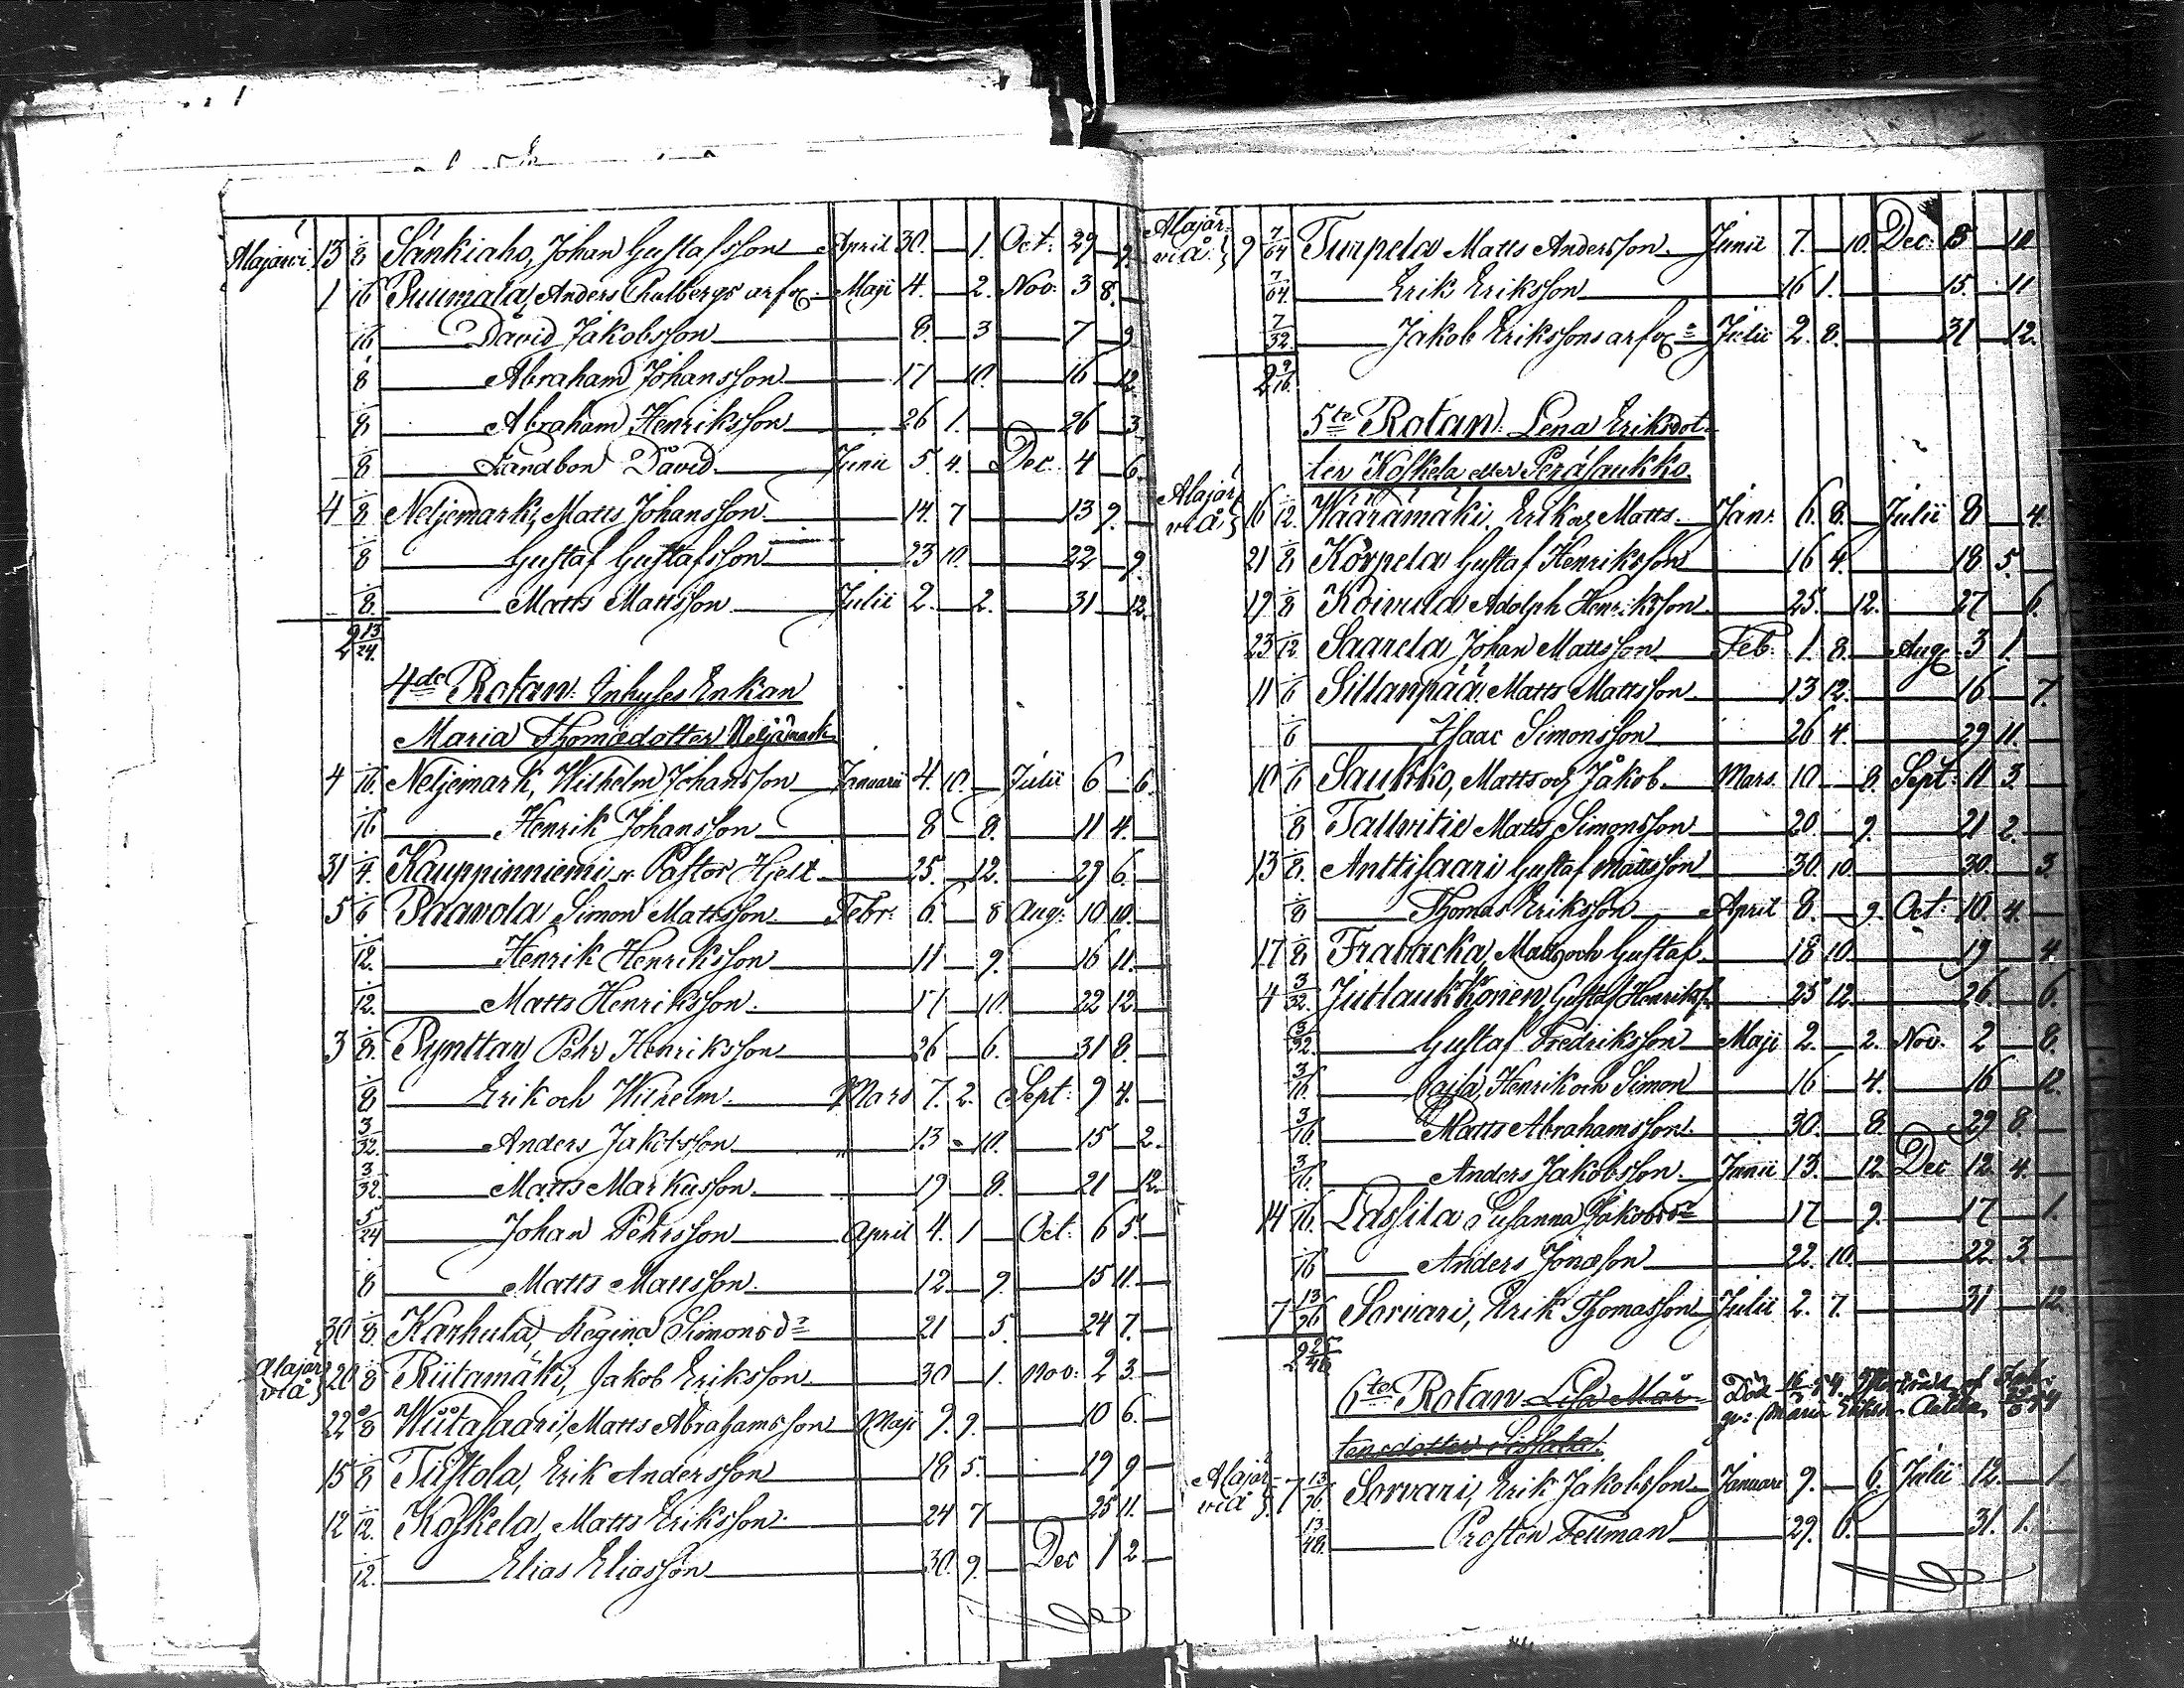 Alajärvi 13 1/8 Sänkiaho, Johan Gustafsson April 30. — 1. Oct: 29 — 9.
1 1/16 Puumala, Anders Carlbergs arfg: Maji 4. — 2. Nov: 3 8. —
1/16 — David Jakobsson — 8. — 3 — 7 — 9
1/8 — Abraham Johansson — 17 — 10. — 16 — 12.
1/8 — Abraham Henriksson — 26 1. — 26 — 3
1/8 — Landbon David — Junii 5. 4. — Dec: 4 — 6.
4 1/8 Neljemark, Matts Johansson — 14. 7 — 13 9. —
1/8 — Gustaf Gustafsson — 23 10. — 22 — 9.
1/8 — Matts Mattsson — Julii 2. — 2. — 31 — 12.
2 13/24.
4de Rotan: Inhyses Enkan
Maria Thomædotter Neljämark
4 1/16 Neljemark, Wilhelm Johansson — Januarii 4. 10. — Julii 6 — 6.
1/16 — Henrik Johansson — 8 — 8. — 11 4. —
31 1/4 Kauppinniemi, Pastor Hjelt — 25. — 12. — 29 6. —
5 1/6 Paavola Simon Mattsson — Febr: 6. — 8 Aug: 10 10. —
1/12. — Henrik Henriksson — 11 — 9. — 16 11. —
1/12. — Matts Henriksson — 17 — 10. — 22 12. —
3 1/8. Pynttäy Pehr Henriksson — 26 — 6. — 31 8. —
1/8 — Erik och Wilhelm. — Mars 7. 2. — Sept: 9 4. —
3/32. — Anders Jakobsson — 13 — 10. — 15 — 2.
3/32. — Matts Markusson — 19 — 8. — 21 — 12.
5/24 — Johan Pehrsson — April 4. 1 — Oct: 6 5. —
1/8 — Matts Mattsson. — 12 — 9. — 15 11. —
30 1/8. Karhula, Regina Simonsdr — 21 — 5. — 24 7. —
Alajärvi å } 20 1/8 Riitamäki, Jakob Eriksson — 30 — 1. Nov: 2 3. —
22 1/8 Wiitasaari, Matts Abrahamsson Maji 9. 9. — 10 6. —
15 1/8 Tiistola, Erik Andersson — 18 5. — 19 9 —
12 1/12. Koskela, Matts Eriksson — 24 7 — 25 11. —
1/12. — Elias Eliasson — 30. 9. — Dec 1 2 —
Alajärvi å } 9 7/64 Turpela Matts Andersson. Junii 7. — 10. Dec: 8 — 10
7/64. — Erik Eriksson — 16 1. — 15. — 11
7/32. — Jakob Erikssons arfg: Julii 2. 8. — 31 — 12.
2 9/16.
5te Rotan: Lena Eriksdot-
ter Koskela eller Peräsaukko.
Alajärvi å } 16 1/12. Wäärämäki, Erik och Matts — Jan: 6. 8. — Julii 8 — 4.
21 1/8 Korpela Gustaf Henriksson — 16 4. — 18. 5. —
19 1/8 Koivula Adolph Henriksson — 25. — 12. — 27 — 6.
23 1/12. Saarela Johan Mattsson — Feb: 1. 8. — Aug: 3 1. —
11 1/6 Sillanpää Matts Mattsson — 13 12. — 16 — 7.
1/6 — Isaac Simonsson — 26 4. — 29 11. —
10 1/6 Saukko, Matts och Jakob. — Mars. 10 — 8. Sept: 11 3. —
1/8 Tallvitie Matts Simonsson — 20 — 9. — 21 2. —
13 1/8. Anttisaari Gustaf Mattsson — 30. 10. — 30. — 3.
1/8 — Thomas Eriksson — April 8. — 9. Oct: 10. 4. —
17 1/8 Frabacka, Matts och Gustaf — 18 10. — 19 — 4.
4 3/32. Jutlaukkonen, Gustaf Henrikss. — 25 12. — 26. — 6.
3/32. — Gustaf Fredriksson — Maji 2. — 2. Nov: 2 — 8.
3/16. — Cajsa, Henrik och Simon — 16 — 4. — 16 — 12.
3/16. — Matts Abrahamsson — 30. — 8. — 29 8. —
3/16. — Anders Jakobsson. — Junii 13. — 12. Dec 12. 4. —
14 1/16. Lassila Susanna Jakobsdr — 17 — 9. — 17 — 1.
1/16 — Anders Jonæson — 22. 10. — 22. 3. —
7 13/96 Sorvari, Erik Thomasson Julii 2. 7. — 31 — 12.
6te Rotan Lisa Mår-
tensdotter Sissala.
Alajärvi å } 7 13/96. Sorvari, Erik Jakobsson Januari 9. — 6. Julii 12. — 1
13/48. — Prosten Fellman — 29. 6. — 31. 1. —